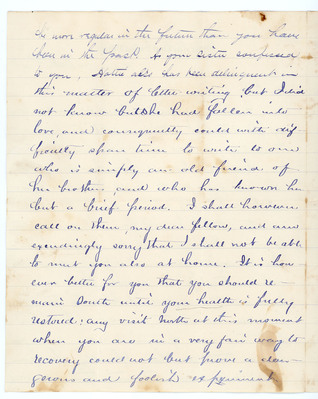 be more regular in the future than you have
been in the past. As your sister confessed
to you, Hattie also has been delinquent in
this matter of letter writing, but I did
not know but she had fallen into
love, and consequently could with dif
ficulty spare time to write to one
who is simply an old friend of
her brother, and who has known her
but a brief period. I shall however
call on them, my dear fellow, and am
exceedingly sorry that I shall not be able
to meet you also at home. It is how
ever better for you that you should re-
main South until your health is fully
restored; any visit North at this moment
when you are in a very fair way to
recovery could not but prove a dan-
gerous and foolish experiment